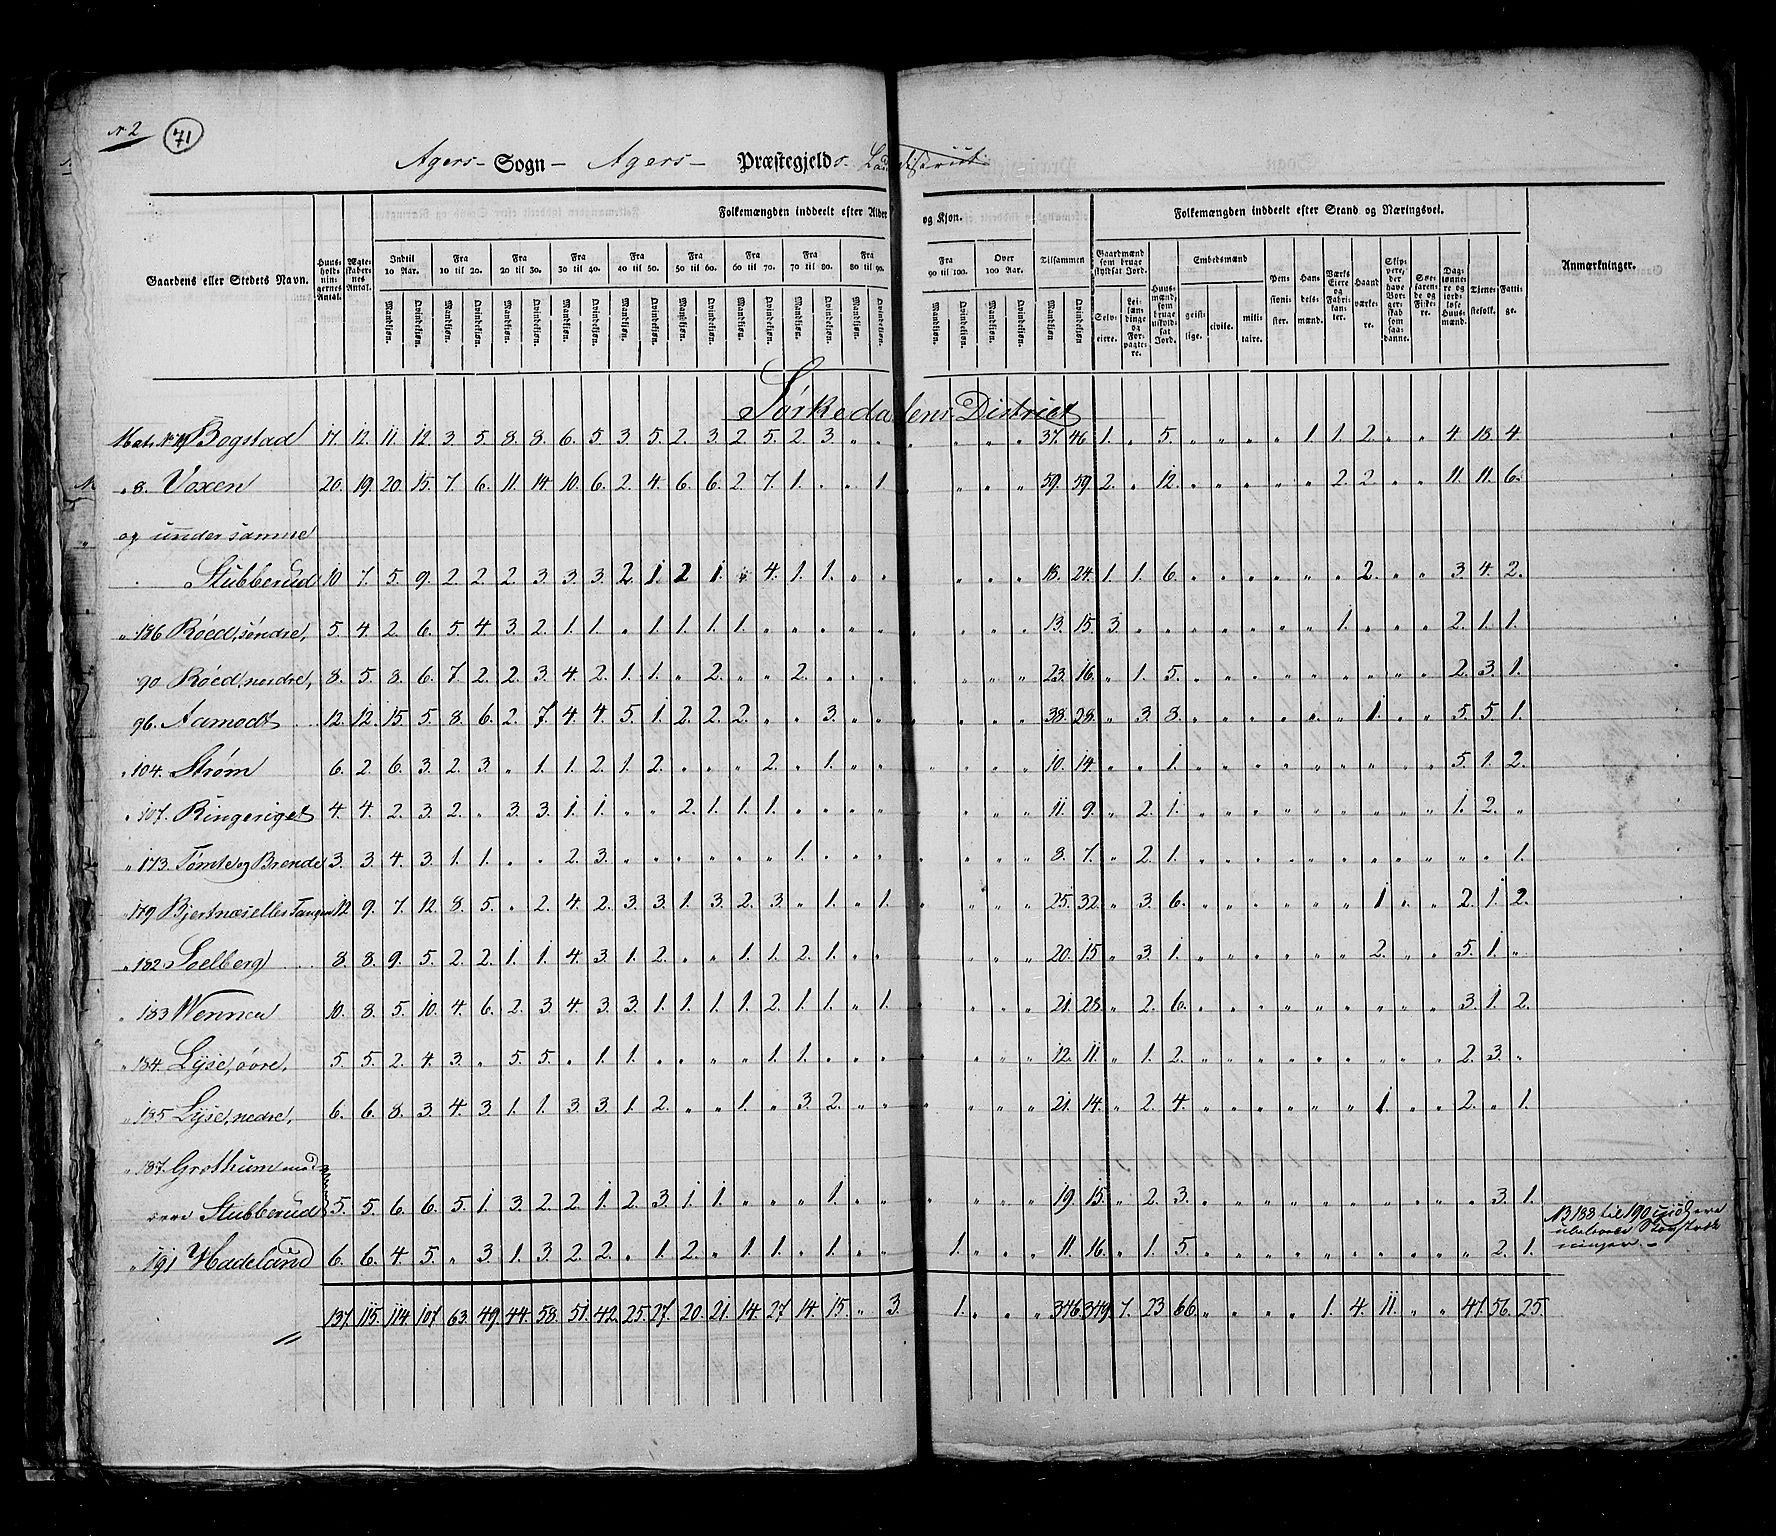 N 2 71
Agers Sogn Agers Præstegjelds
Gaardens eller Stedets Navn. Huus-holdningernes Antal. Ægteskabernes Antal. Folkemængden inddeelt efter Alder og Kjøn. Tilsammen Folkemængden inddeelt efter Stand og Næringsvei. Anmærkninger.
Indtil 10 Aar. Fra 10 til 20. Fra 20 til 30. Fra 30 til 40. Fra 40 til 50. Fra 50 til 60. Fra 60 til 70. Fra 70 til 80. Fra 80 til 90. Fra 90 til 100. Over 100 Aar.
Mandkjøn. Qvindekjøn. Mandkjøn. Qvindekjøn. Mandkjøn. Qvindekjøn. Mandkjøn. Qvindekjøn. Mandkjøn. Qvindekjøn. Mandkjøn. Qvindekjøn. Mandkjøn. Qvindekjøn. Mandkjøn. Qvindekjøn. Mandkjøn. Qvindekjøn. Mandkjøn. Qvindekjøn. Mandkjøn. Qvindekjøn. Mandkjøn Qvindekjøn.
Gaardmænd som bruge skyldsat Jord. Selveiere. Leilændinge og Forpagtere. Huusmænd, som bruge uskyldsat Jord. Embedsmænd geistlige. civile. militaire. Pensionister. Handelsmænd. Værks Eiere og Fabrikanter. Haandværkere. Skippere, der have Borgerskab som saadanne. Søefarende og Fiskere. Daglønnere og jordløse Huusmænd. Tjenestefolk. Fattige.
Sørkedalens District
Bogstad 17. 12. 11. 12. 3. 5. 8. 8. 6. 5. 3. 5. 2. 3. 2 5. 2. 3. " " " " " " 37. 46 1. " 5. " " " " 1 1. 2. " " 4. 18. 4.
" 8. Voxen 20. 19. 20. 15. 7. 6. 11. 14. 10. 6. 2. 4. 6. 6. 2. 7. 1. " " 1 " " " " 59. 59 2. " 12. " " " " " 2. 2. " " 11. 11. 6.
og under samme
Stubberud 10 7. 5. 9. 2 2. 2. 3. 3. 3. 2. 1. 2 1. " 4. 1. 1. " " " " " " 18. 24. 1. 1. 6. " " " " " " 2. " " 3. 4. 2.
" 186 Röed, söndre, 5. 4. 2. 6. 5. 4. 3. 2. 1. 1. " 1. 1. 1. 1. " " " " " " " " " 13. 15. 3. " " " " " " " 1. " " " 2. 1. 1.
90 Röed, nordre, 8. 5. 8. 6. 7. 2. 2. 3. 4. 2. 1. 1. " 2. " " 2. " " " " " " " 23. 16. " 1. 5. " " " " " " " " " 2. 3. 1.
96. Aamodt 12. 12. 15. 5. 8. 6. 2. 7. 4. 4. 5. 1. 2. 2. 2. " " 3. " " " " " " 38. 28. " 3. 8. " " " " " " 1. " " 5. 5 1.
" 104. Strøm 6. 2. 6. 3. 2. 3. " 1. 1. 2. 1. 2. " " " 2. " 1. " " " " " " 10. 14. " " 1. " " " " " " " " " 5. 1. 2.
" 107. Ringeriget 4. 4. 2. 3. 2. " 3. 3. 1. 1. " " 2. 1. 1. 1. " " " " " " " " 11. 9. " 2. 1. " " " " " " " " " 1. 2. "
" 173. Tömte og Brende 3. 3. 4. 3. 1. 1. " " 2. 3. " " " " " " 1. " " " " " " " 8. 7. " 2. 1. " " " " " " " " " " " 1.
" 179 Bjertnæs 12. 9. 7. 12. 8. 5. " 2. 4. 2. 3. 3. 1. 3. 2. 3. " 1. " 1. " " " " 25. 32. " 3. 6. " " " " " " 1 " " 2. 1. 2.
" 182. Soelberg 8. 8. 9. 5. 2. 2. 1. 1. 4. 3. 1. 2. " " 1. 1. 2. 1. " " " " " " 20. 15. " 3. 1. " " " " " " 2. " " 5. 1. "
" 183 Wennen 10. 8. 5. 10. 4. 6. 2. 3. 4. 3. 3. 1. 1. 1. 1. 2. 1. 1. " 1. " " " " 21. 28. " 2. 6. " " " " " " " " " 3. 1. 2.
" 184. Lyse, övre, 5. 5. 2. 4. 3. " 5. 5. " 1. 1. " " " " 1. 1. " " " " " " " 12. 11. " 1. 2. " " " " " " " " " 2. 3. "
" 185 Lyse, nedre, 6. 6. 8. 3. 4. 3. 1. 1. 3. 3. 1. 2. " " 1. " 3. 2. " " " " " " 21. 14. " 2. 4. " " " " " " 1. " " 2. " 1.
" 187. Grothum
Stubberud 5. 5. 6. 6. 5. 1. 3. 2. 2. 1. 2. 3. 1. 1. " " " 1. " " " " " " 19. 15. " 2. 3. " " " " " " " " " " 3. 1.
" 191 Hadeland 6. 6. 4. 5. " 3. 1. 3. 2. 2. " 1. 2. " 1. 1. " 1. " " 1. " " " 11. 16. " 1. 5. " " " " " " " " " " 2. 1.
137. 115. 114. 107. 63. 49. 44. 58. 51. 42. 25. 27. 20. 21. 14. 27. 14. 15. " 3. 1. " " " 346. 349. 7. 23 66. " " " " 1. 4. 11. " " 47. 56. 25.
N3 188 til 190